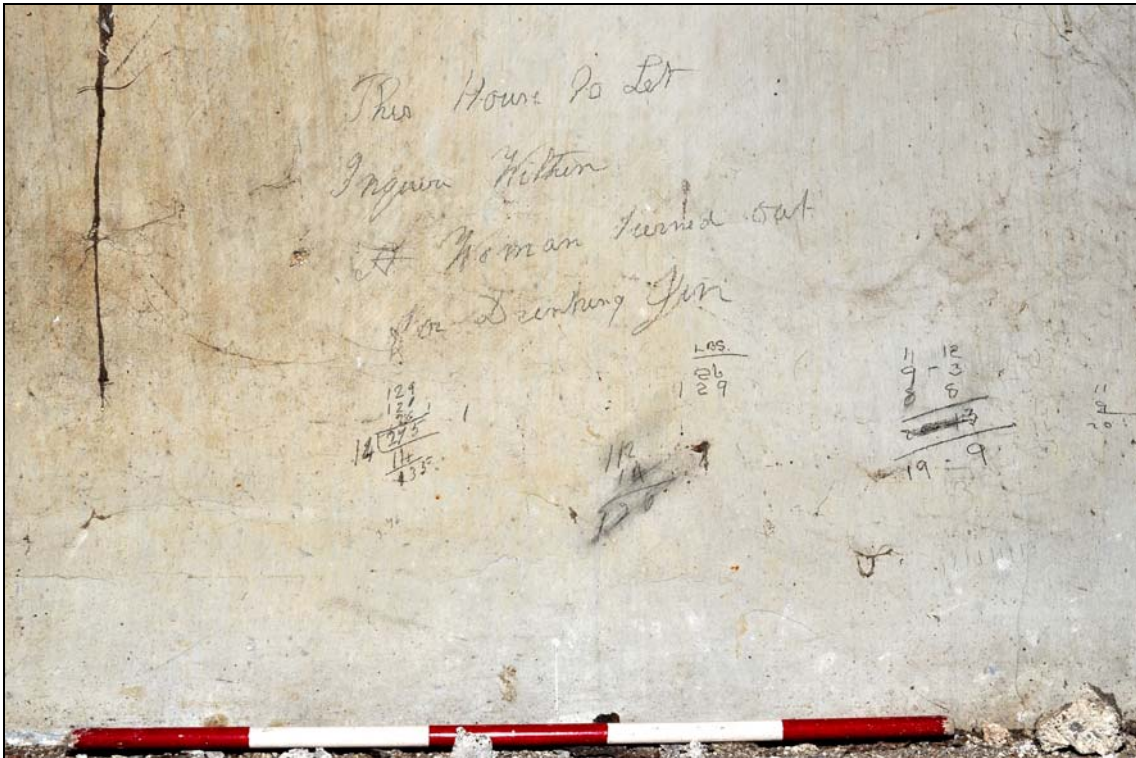 This House To Let
Inquire Within
A Woman turned out
for Drinking Gin
129
120
26 1
14 295
14
135
1
LBS.
26
1 29
112
14
126
11 12
9 - 3
8 8
19 - 9
11
20